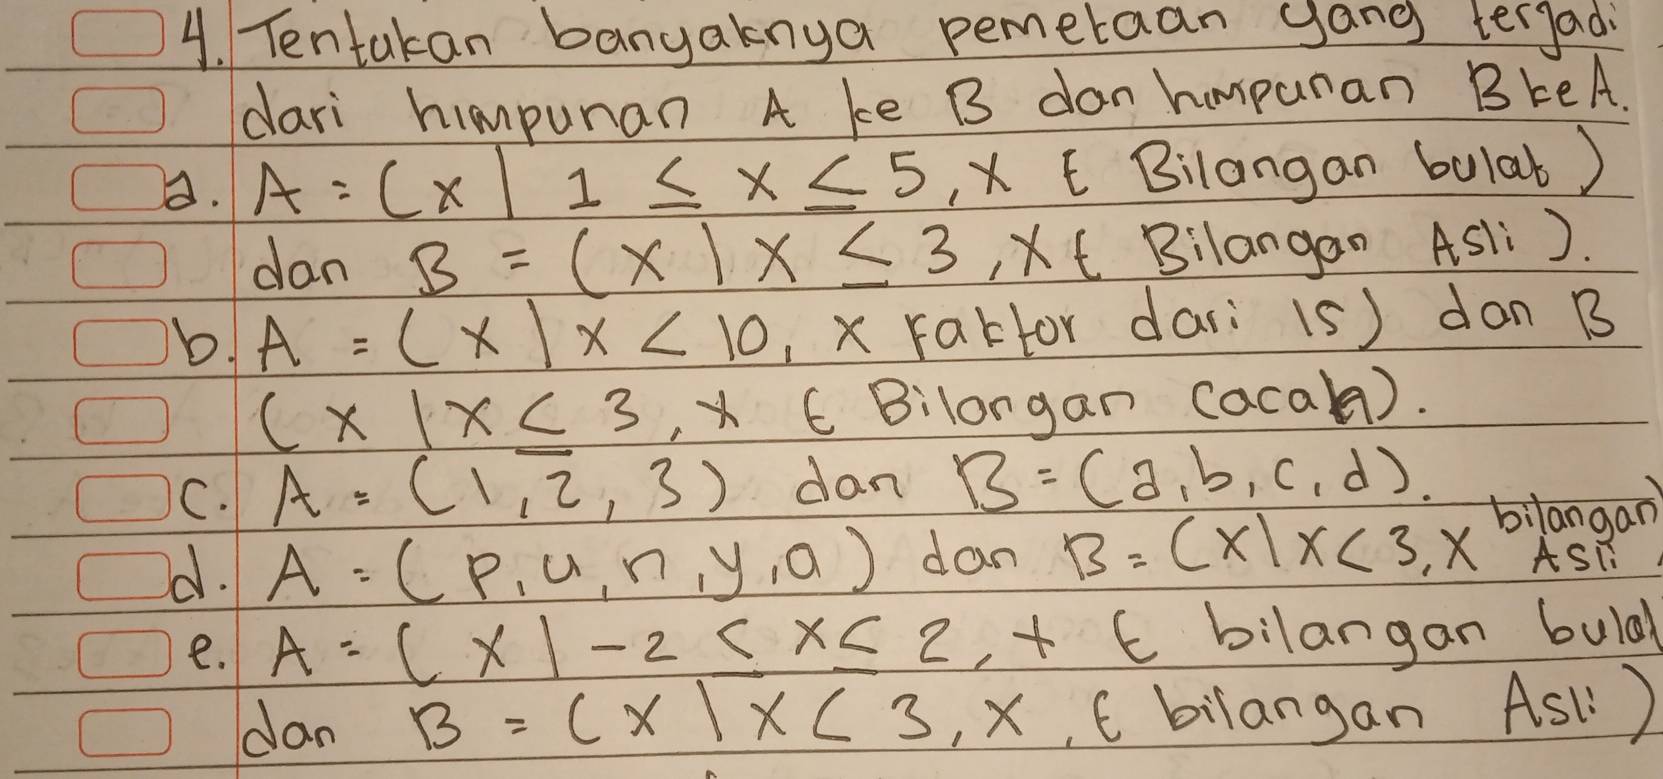 4. Tentukan banyaknya pemetaan yang terjadi
dari himpunan A ke B dan himpunan B ke A.
a. A = (x | 1 ≤ x ≤ 5, x ∈ Bilangan bulat)
dan B = (x | x ≤ 3, x ∈ Bilangan Asli).
b. A = (x | x < 10, x Faktor dari 15) dan B
(x | x ≤ 3, x ∈ Bilangan cacah).
c. A = (1, 2, 3) dan B = (a, b, c, d).
d. A = (p, u, n, y, a) dan B = (x | x < 3, x bilangan Asli)
e. A = (x | -2 ≤ x ≤ 2, x ∈ bilangan bulat
dan B = (x | x < 3, x, ∈ bilangan Asli)